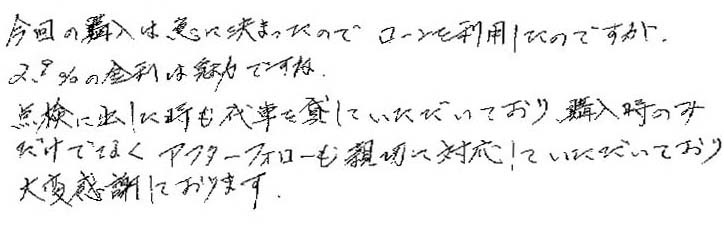 今回の購入は急に決まったので ローンを利用したのですが、
2.9%の金利は魅力ですね。
点検に出した時も代車を貸していただいており、購入時のみ
だけでなく アフターフォローも親切に対応していただいており
大変感謝しております。